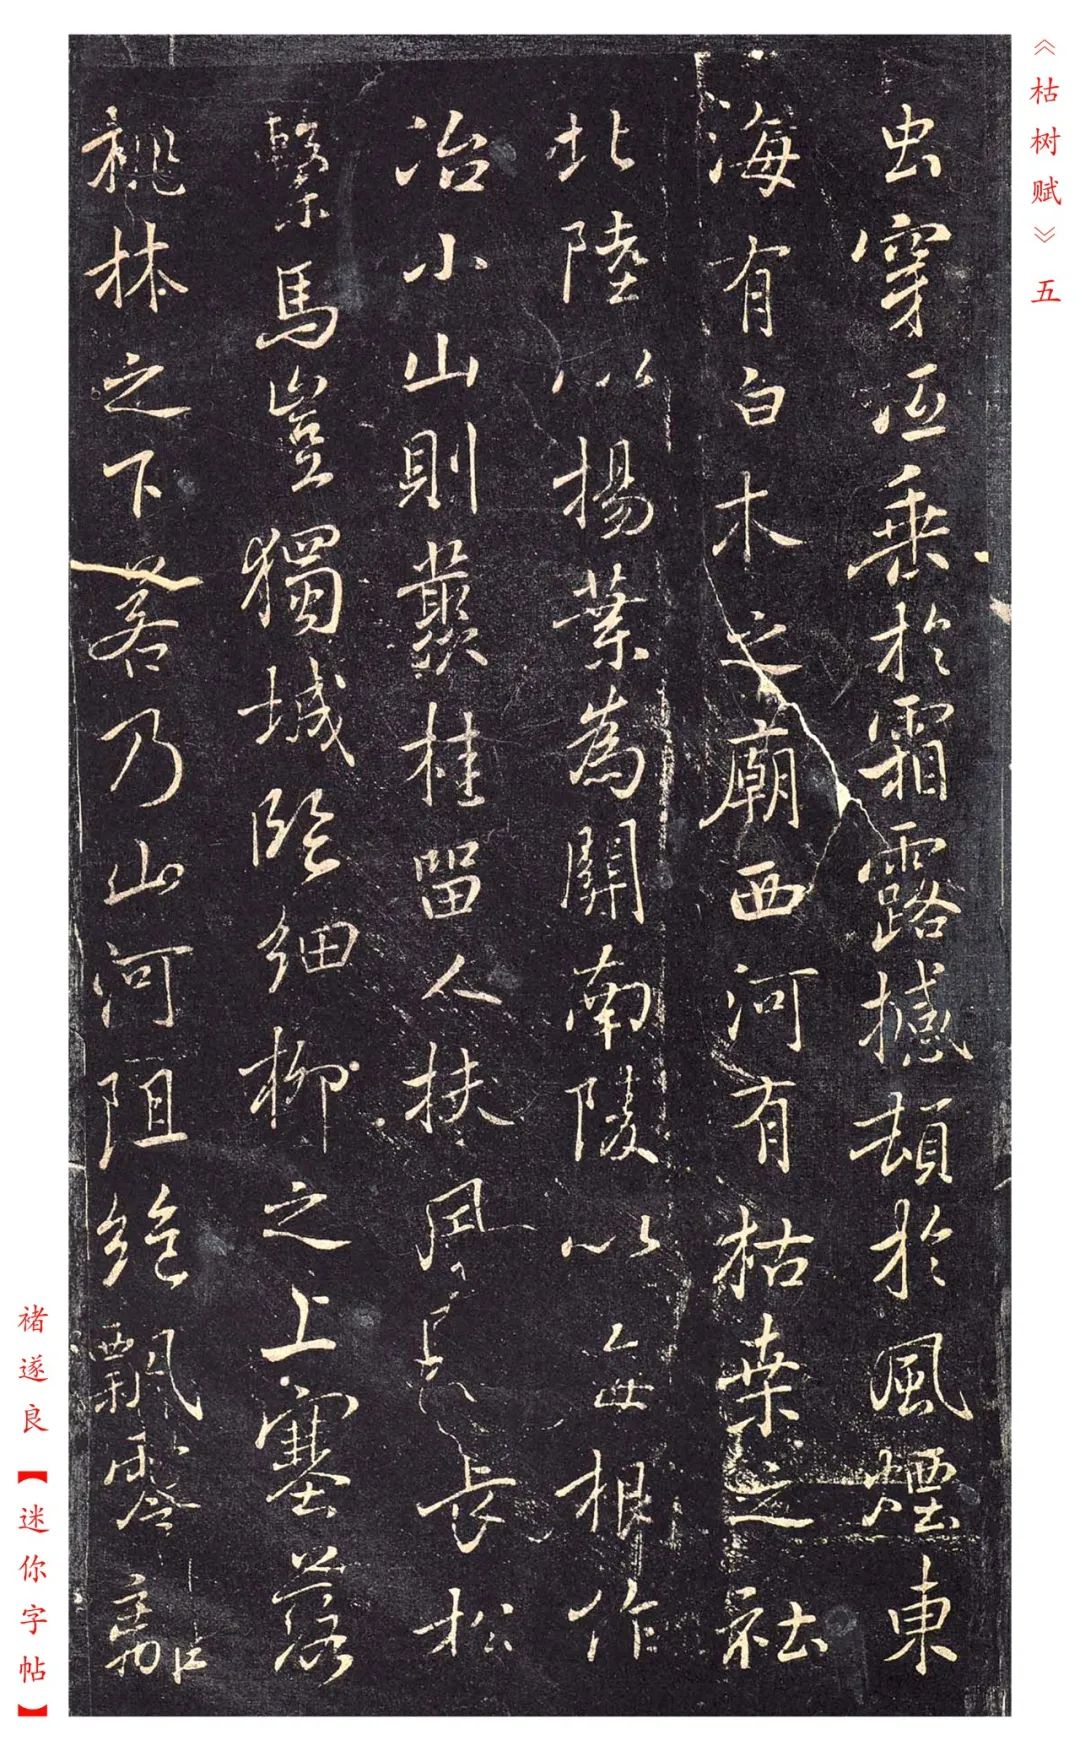 《枯树赋》五
虫穿低垂於霜露撼頓於風煙東
海有白木之廟西河有枯桒之社
北陸以楊葉為關南陵以每根作
冶小山則叢桂留人扶風長松
繫馬豈獨城臨細柳之上塞落
桃林之下若乃山河阻絶飄零離
褚遂良【迷你字帖】